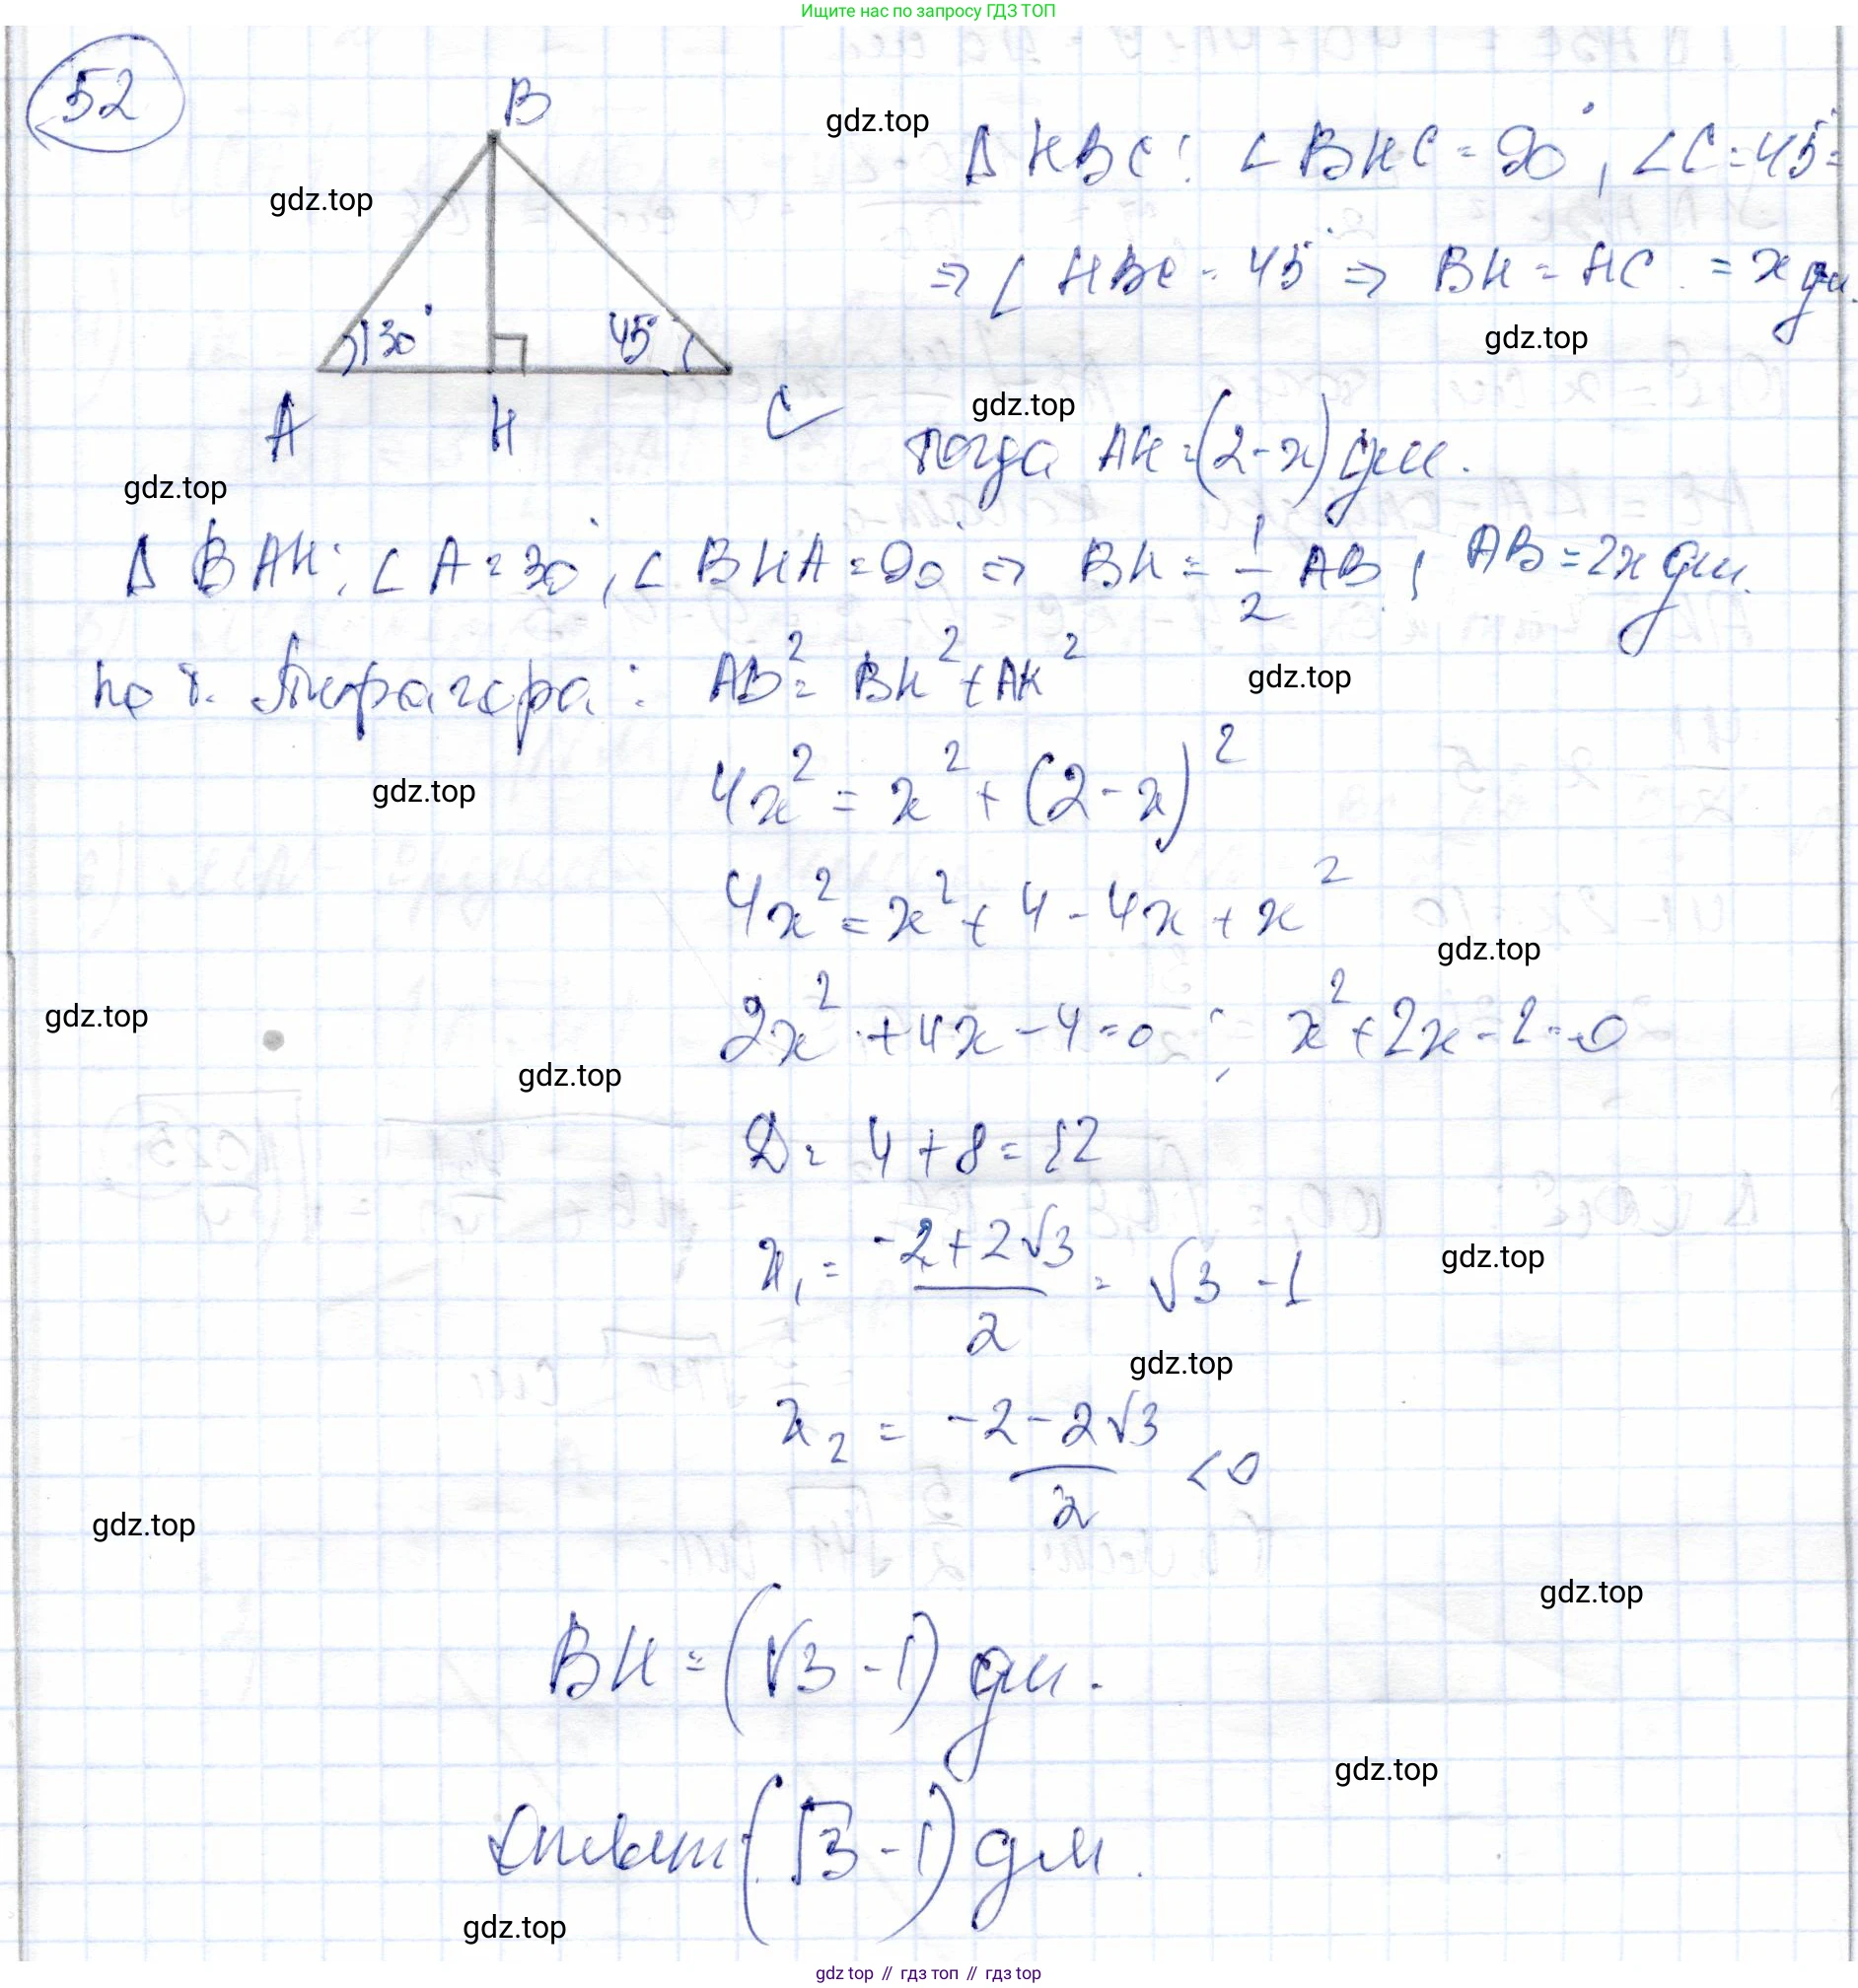 Ищите нас по запросу ГДЗ ТОП
52
B
gdz.top
Δ HBC: ∠BHC = 90°, ∠C = 45° =
gdz.top
⇒ ∠HBC = 45° ⇒ BH = HC = x дм.
30°
45°
gdz.top
A
H
C
gdz.top
тогда AH = (2-x) дм.
gdz.top
Δ BAH: ∠A = 30°, ∠BHA = 90° ⇒ BH = 1/2 AB; AB = 2x дм.
по т. Пифагора: AB² = BH² + AH²
gdz.top
gdz.top
4x² = x² + (2-x)²
4x² = x² + 4 - 4x + x²
gdz.top
gdz.top
2x² + 4x - 4 = 0; x² + 2x - 2 = 0
gdz.top
D = 4 + 8 = 12
x₁ = (-2+2√3)/2 = √3 - 1
gdz.top
gdz.top
x₂ = (-2-2√3)/2 < 0
gdz.top
gdz.top
BH = (√3 - 1) дм.
gdz.top
Ответ (√3 - 1) дм.
gdz.top
gdz top // гдз топ // гдз top